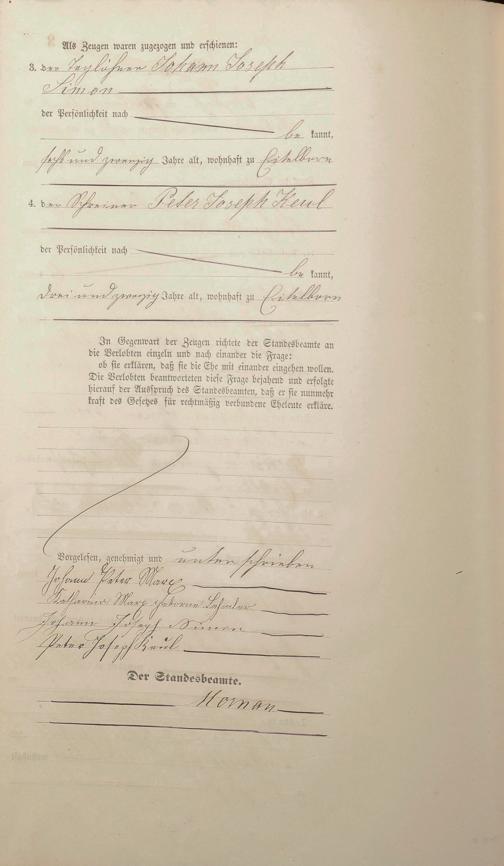 Als Zeugen waren zugezogen und erschienen:
3. der Taglöhner Johann Joseph
Simon
der Persönlichkeit nach
be kannt,
sechs und zwanzig Jahre alt, wohnhaft zu Eitelborn
4. der Schreiner Peter Joseph Keul
der Persönlichkeit nach
be kannt,
drei und zwanzig Jahre alt, wohnhaft zu Eitelborn
In Gegenwart der Zeugen richtete der Standesbeamte an
die Verlobten einzeln und nach einander die Frage:
ob sie erklären, daß sie die Ehe mit einander eingehen wollen.
Die Verlobten beantworteten diese Frage bejahend und erfolgte
hierauf der Ausspruch des Standesbeamten, daß er sie nunmehr
kraft des Gesetzes für rechtmäßig verbundene Eheleute erkläre.
Vorgelesen, genehmigt und unterschrieben
Johann Peter Marx
Katharina Marx geborene
Johann Joseph Simon
Peter Joseph Keul
Der Standesbeamte.